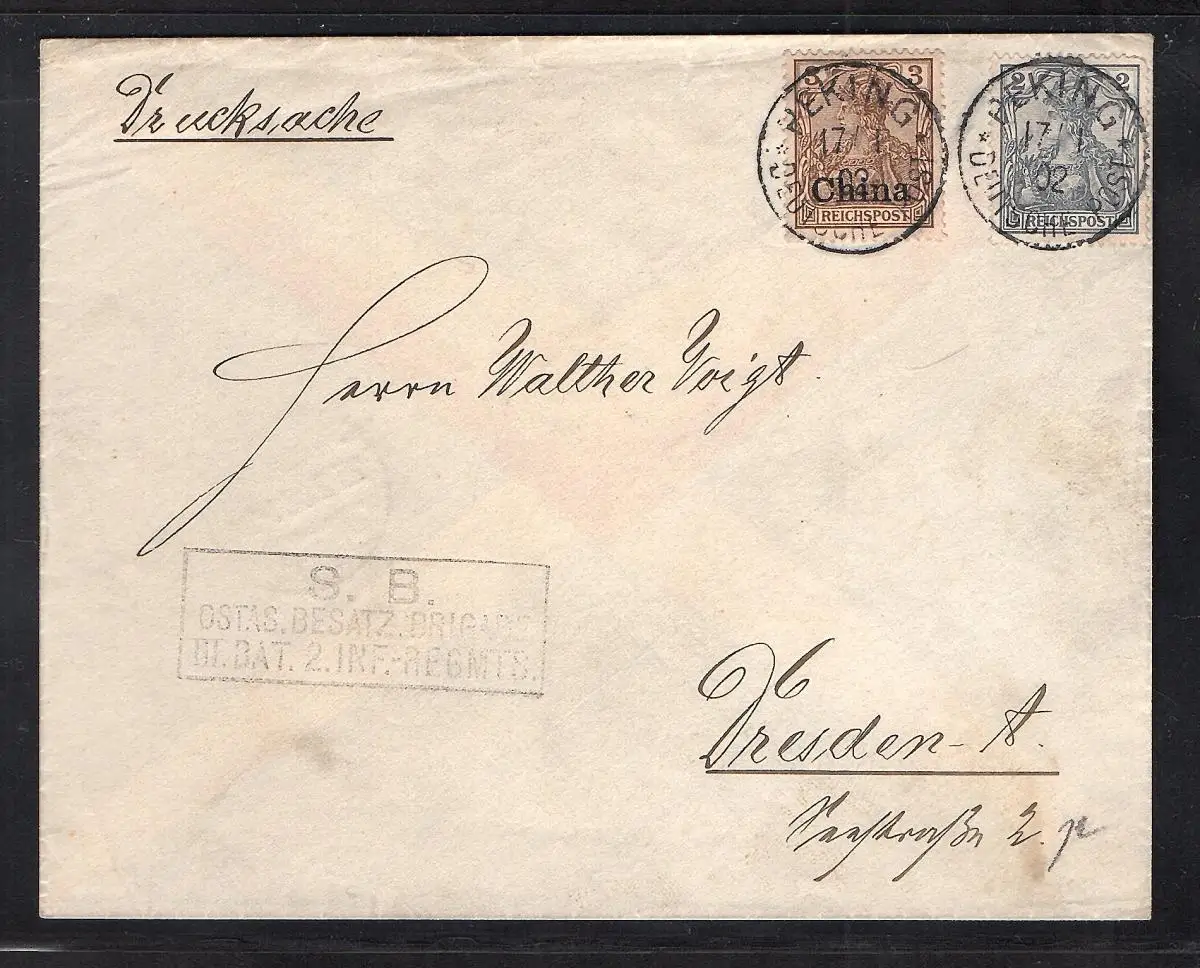 Drucksache
3 3
China
REICHSPOST
PEKING
17/1
02
* DEUTSCHE POST *
2 2
REICHSPOST
PEKING
17/1
02
* DEUTSCHE POST *
Herrn Walther Voigt.
S. B.
OSTAS. BESATZ. BRIGADE
III. BAT. 2. INF.-REGMTS.
Dresden-A.
Seestraße 2.